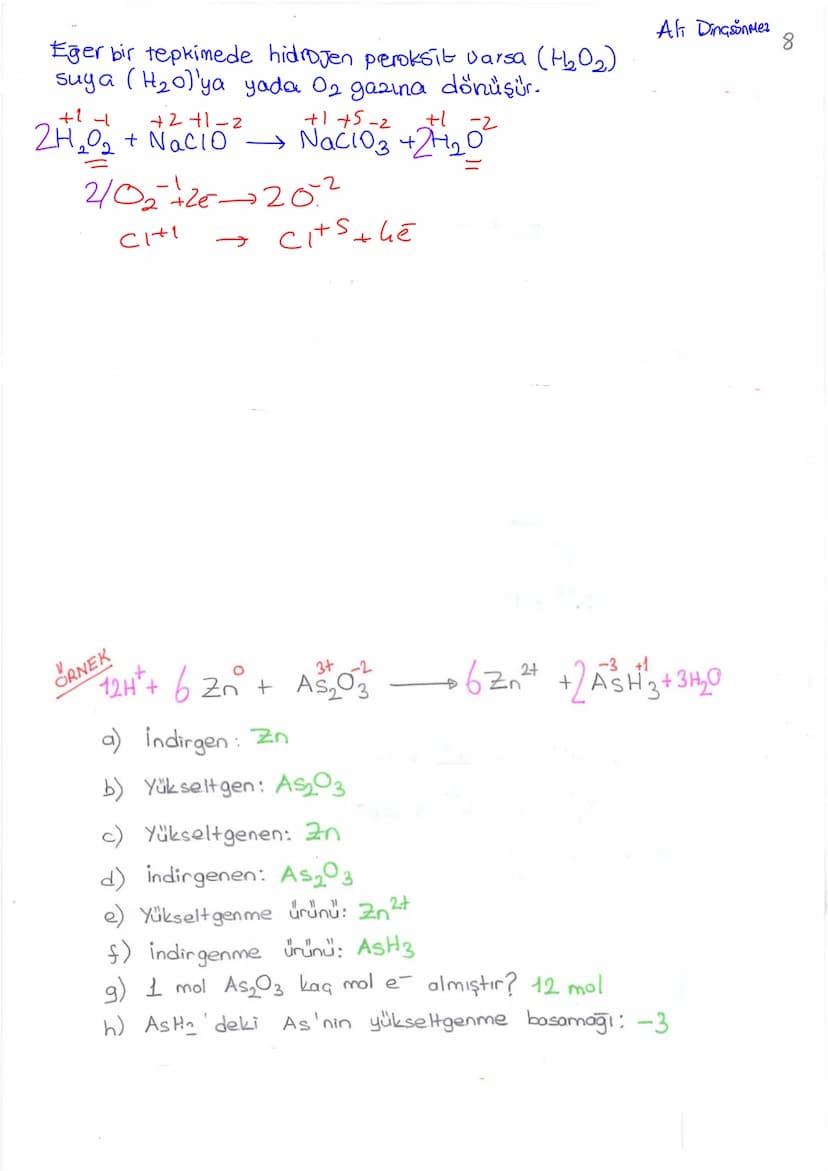 Ali Dinçsönmez 8
Eğer bir tepkimede hidrojen peroksit varsa (H₂O₂)
suya (H₂O)'ya yada O₂ gazına dönüşür.
+1 -1 +2 +1 -2 +1 +5 -2 +1 -2
2H₂O₂ + NaClO → NaClO₃ + 2H₂O
2/ O₂⁻¹ + 2e⁻ → 2O⁻²
Cl⁺¹ → Cl⁺⁵ + 4e⁻
ÖRNEK
0 3+ -2 -3 +1
12H⁺ + 6 Zn + As₂O₃ → 6 Zn²⁺ + 2 AsH₃ + 3H₂O
a) İndirgen: Zn
b) Yükseltgen: As₂O₃
c) Yükseltgenen: Zn
d) İndirgenen: As₂O₃
e) Yükseltgenme ürünü: Zn²⁺
f) İndirgenme ürünü: AsH₃
g) 1 mol As₂O₃ kaç mol e⁻ almıştır? 12 mol
h) AsH₃'deki As'nin yükseltgenme basamağı: -3